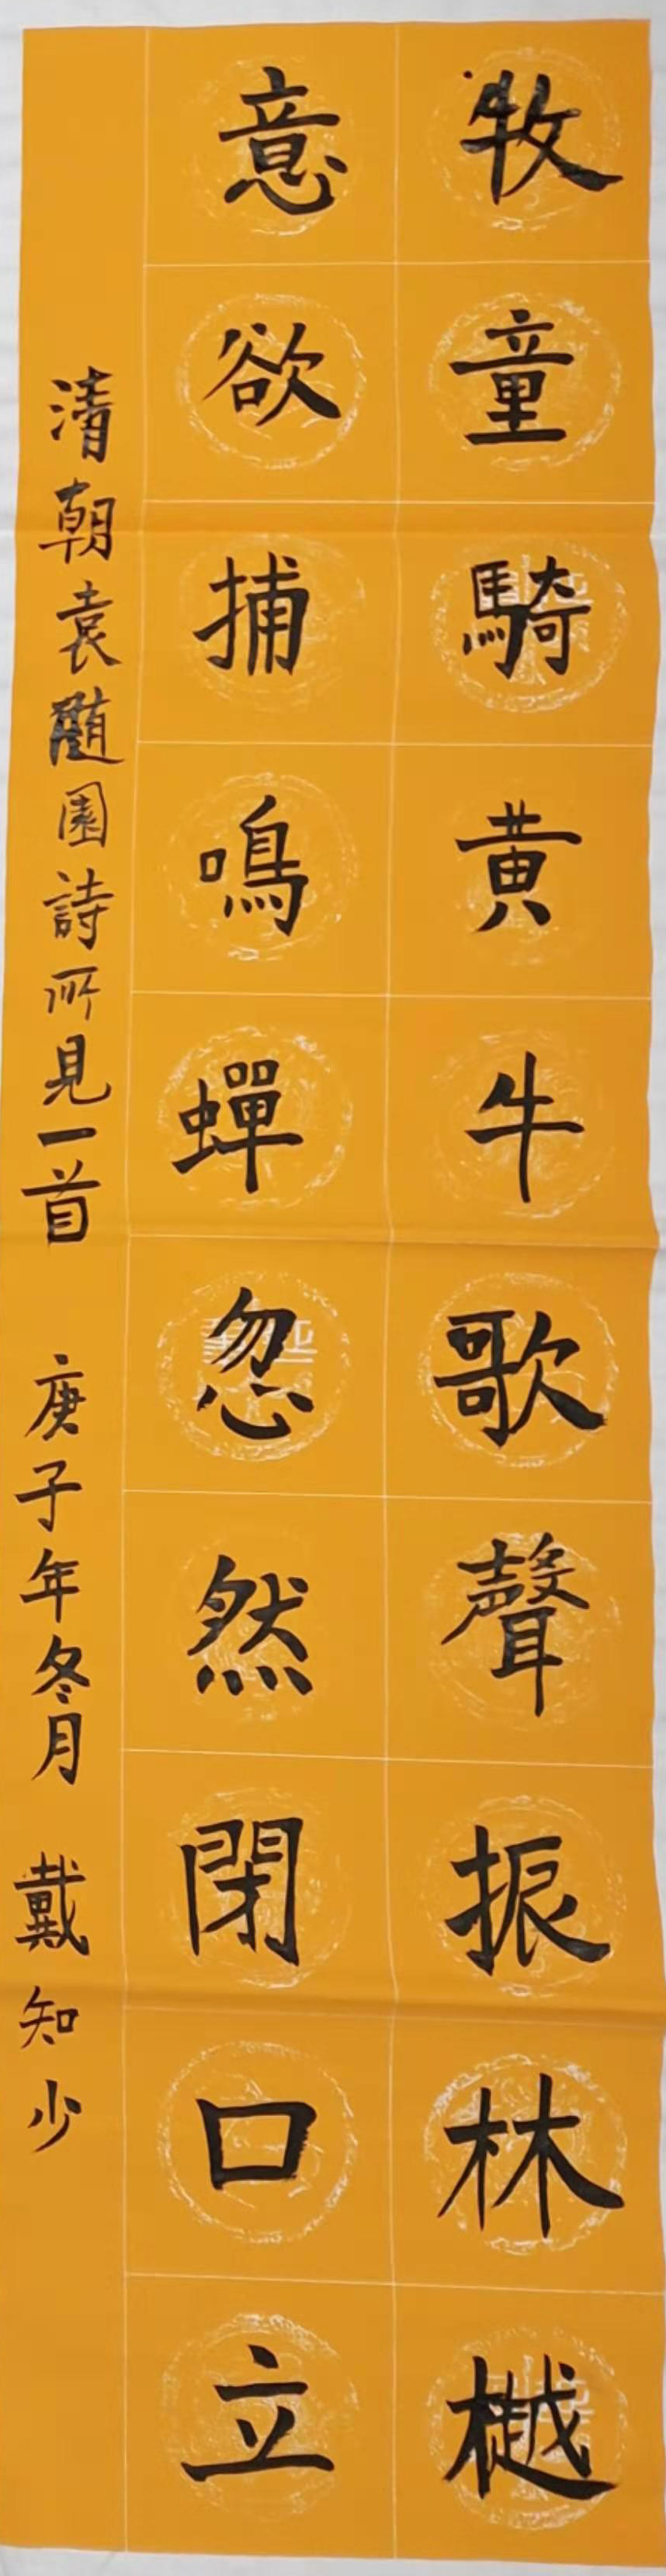 牧童騎黄牛歌聲振林樾
意欲捕鳴蟬忽然閉口立
清朝袁隨園詩所見一首 庚子年冬月 戴知少